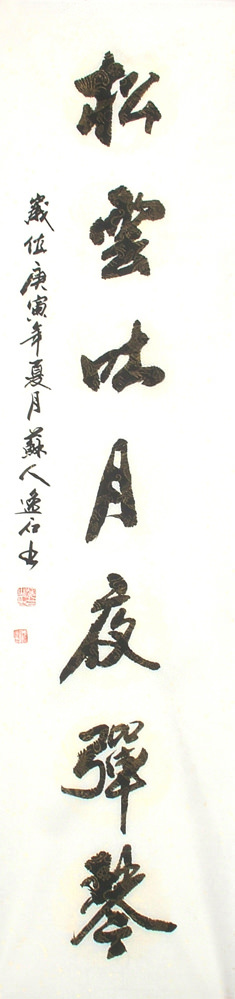 松雲吐月夜彈琴
歲值庚寅年夏月蘇人逸石書